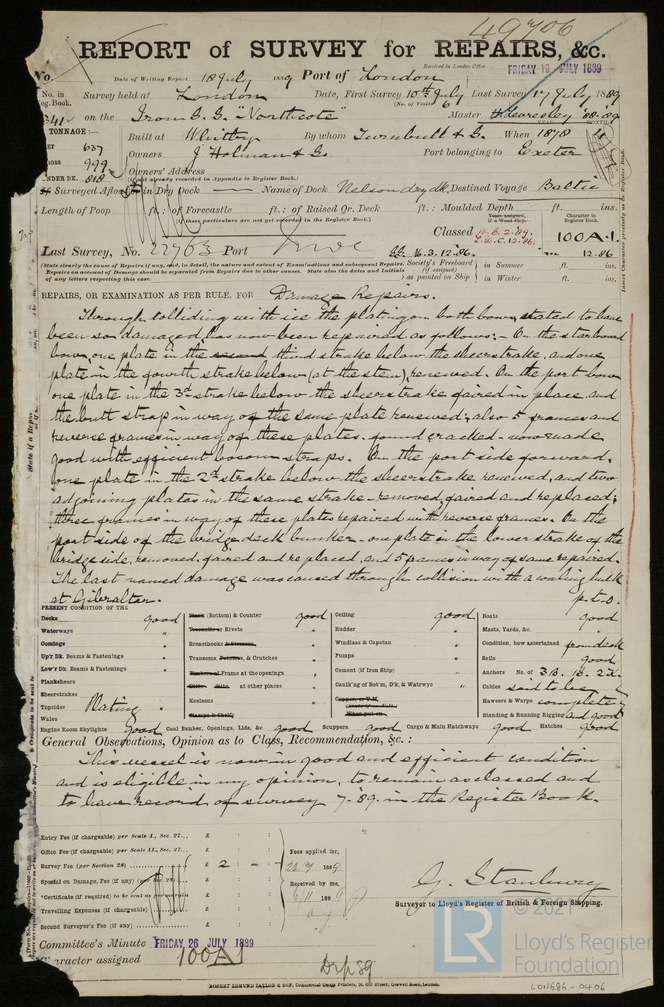 49706
REPORT of SURVEY for REPAIRS, &c.
Received in London Office
No. Date of Writing Report 18 July 1889 Port of London FRIDAY 19 JULY 1889
No. in Reg. Book. Survey held at London Date, First Survey 10th July Last Survey 17 July 1889
(No. of Visits) 6
on the Iron S.S. "Northcote" Master
TONNAGE:— Built at Whitby By whom Turnbull & S. When 1878
637
GROSS 999 Owners J Holman & Ss. Port belonging to Exeter
UNDER DK. 818 Owners' Address
(if not already recorded in Appendix to Register Book.)
If Surveyed Afloat or in Dry Dock — Name of Dock Nelson dry dk. Destined Voyage Baltic
Length of Poop ft.: of Forecastle ft.: of Raised Qr. Deck ft.: Moulded Depth ft. ins.
(these particulars are not yet recorded in the Register Book.)
Years assigned, if a Wood Ship.
Character in Register Book.
Classed 100A.1.
Last Survey, No. 22763 Port 16.3.12.86. 12.86.
Society's Freeboard (if assigned) as painted on Ship in Summer ft. ins.
in Winter ft. ins.
(State clearly the cause of Repairs if any, and, in detail, the nature and extent of Examinations and subsequent Repairs.
Repairs on account of Damage should be separated from Repairs due to other causes. State also the dates and Initials
of any letters respecting this case.
REPAIRS, OR EXAMINATION AS PER RULE, FOR Damage Repairs.
Through colliding with ice the plating on both bows, stated to have
been so damaged has now been repaired as follows:- On the starboard
bow, one plate in the second third strake below the sheerstrake, and one
plate in the fourth strake below (at the stem), renewed. On the port bow
one plate in the 3rd strake below the sheerstrake faired in place and
the butt strap in way of the same plate renewed; also 5 frames and
reverse frames in way of these plates, found cracked - now made
good with efficient bosom straps. On the port side forward,
one plate in the 2d strake below the sheerstrake renewed, and two
adjoining plates in the same strake - removed, faired and replaced;
three frames in way of these plates repaired with reverse frames. On the
port side of the bridge deck bunker - one plate in the lower strake of the
bridge side, removed, faired and replaced, and 5 frames in way of same repaired.
The last named damage was caused through collision with a coaling hulk
at Gibraltar. p.t.o.
PRESENT CONDITION OF THE
Decks good
Waterways "
Comings "
Up'r Dk. Beams & Fastenings "
Low'r Dk. Beams & Fastenings "
Planksheers
Sheerstrakes
Topsides Plating "
Wales
Plank (Bottom) & Counter good
Treenails or Rivets "
Breasthooks & Stemson "
Transoms, Pointers, & Crutches "
Timbers of Frame at the openings "
Ditto Ditto at other places "
Keelsons "
Clamps & Shelfs
Ceiling good
Rudder "
Windlass & Capstan "
Pumps "
Cement (if Iron Ship) "
Caulk'ng of Bot'm, D'k, & Waterw'ys "
Copper, or Y.M.
When put on
Boats good
Masts, Yards, &c. "
Condition, how ascertained from deck
Sails good
Anchors No. of 3B. 1S. 2K.
Cables said to be
Hawsers & Warps complete
Standing & Running Rigging and good
Engine Room Skylights good Coal Bunker, Openings, Lids, &c good Scuppers good Cargo & Main Hatchways good Hatches good
General Observations, Opinion as to Class, Recommendation, &c.:
This vessel is now in good and efficient condition
and is eligible in my opinion, to remain as classed and
to have record of survey 7.89. in the Register Book.
Entry Fee (if chargeable) per Scale I., Sec. 27... £ : :
Office Fee (if chargeable) per Scale II., Sec. 27... £ : :
Survey Fee (per Section 28) £ 2 : - : -
Special on Damage, Fee (if any) £ : :
Certificate (if required) to be sent as per margin £ : :
Travelling Expenses (if chargeable) £ : :
Second Surveyor's Fee (if any) £ : :
Fees applied for, 23.7 1889
Received by me, 1889
G. Stanbury
Surveyor to Lloyd's Register of British & Foreign Shipping.
Committee's Minute FRIDAY 26 JULY 1889
Character assigned 100A1
ROBERT EDMUND TAYLOR & SON, Commercial Steam Printers, 19, Old Street, Goswell Road, London.
© 2021
LR Lloyd's Register Foundation
LON686-0406